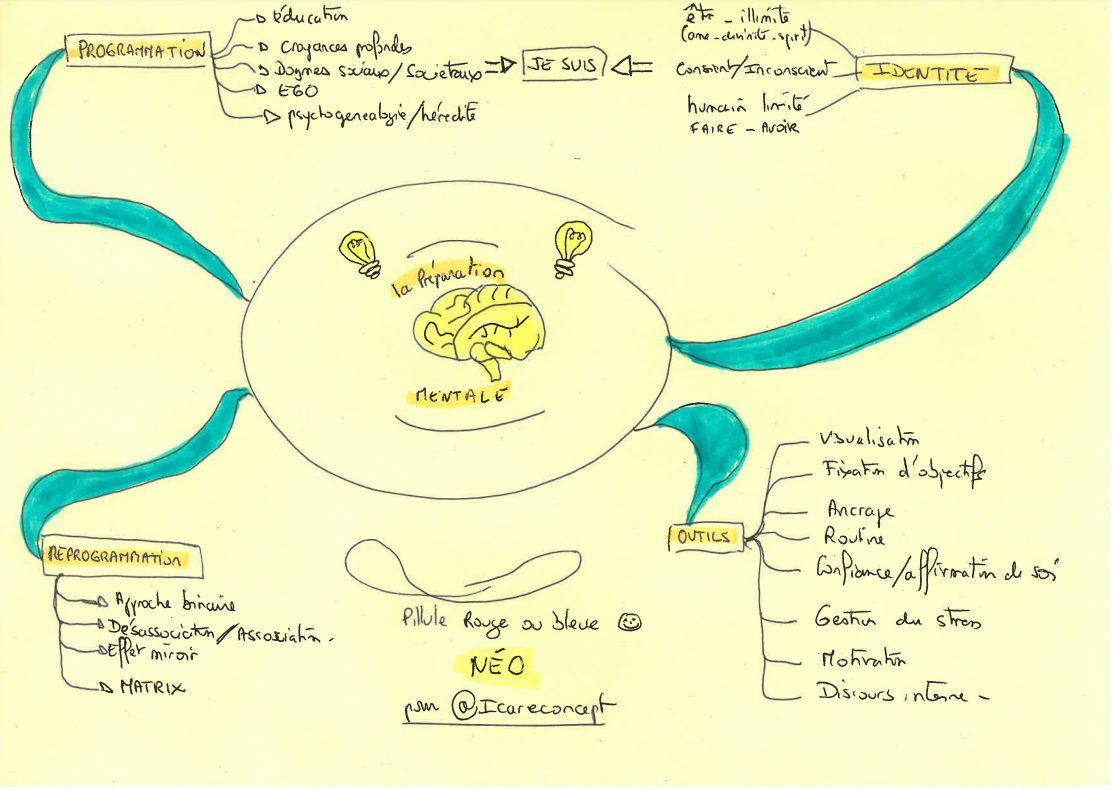 PROGRAMMATION
éducation
Croyances profondes
Dogmes sociaux/Sociétaux
EGO
psychogenealogie/hérédité
JE SUIS
IDENTITÉ
être - illimité
(âme - divinité - spirit)
Conscient/Inconscient
humain limité
FAIRE - AVOIR
la Préparation
MENTALE
REPROGRAMMATION
Approche binaire
Désassociation/Association.
Effet miroir
MATRIX
OUTILS
Visualisation
Fixation d'objectifs
Ancrage
Routine
Confiance/affirmation de soi
Gestion du stress
Motivation
Discours interne -
Pillule Rouge ou bleue
NÉO
@Icareconcept